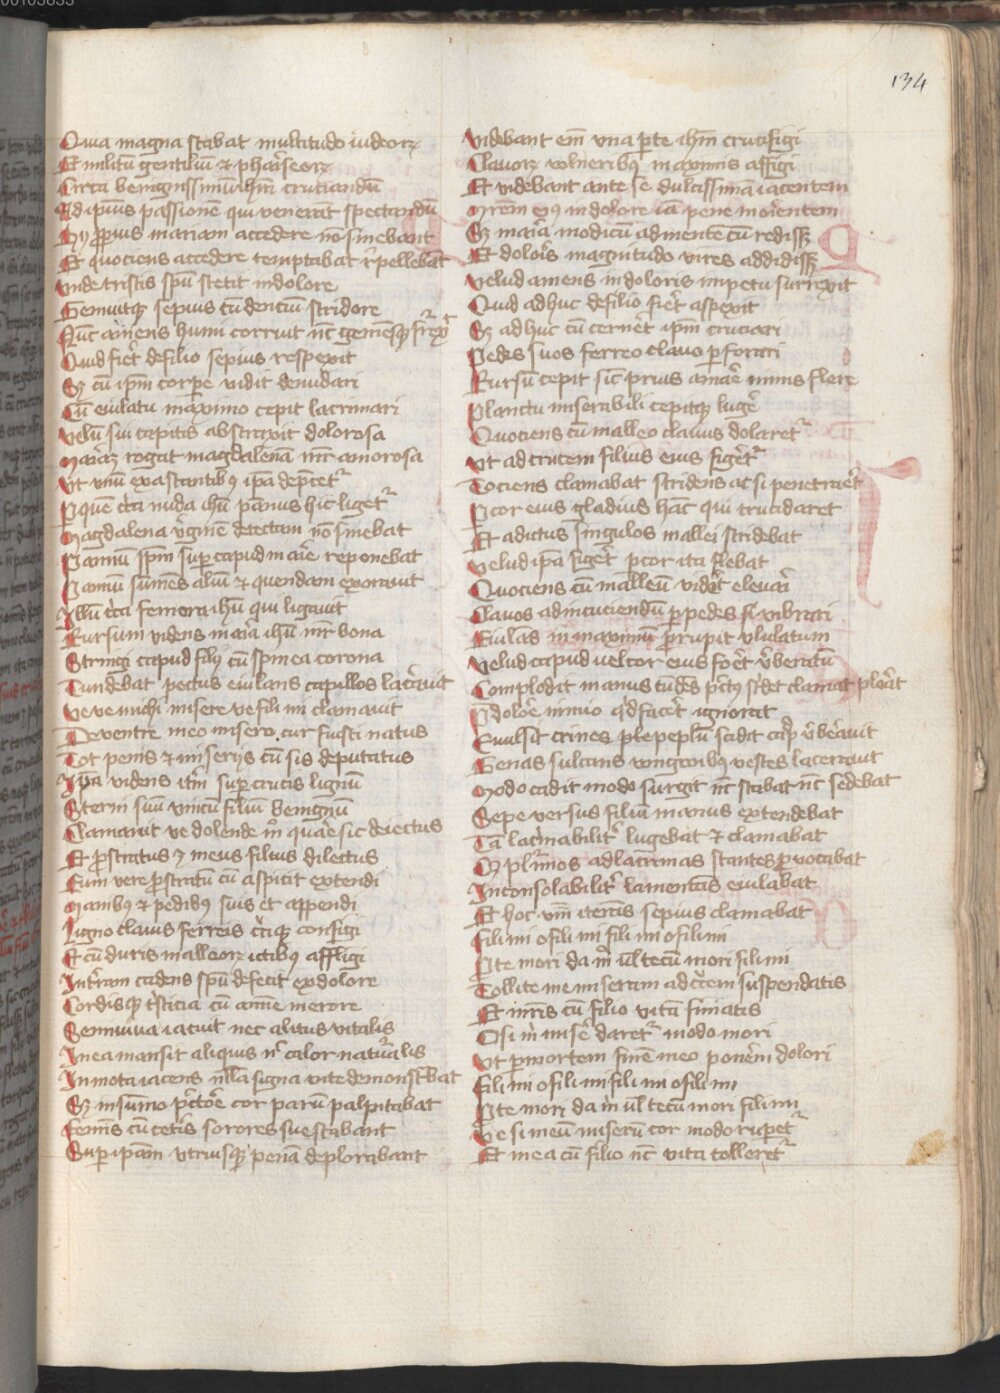 134
Quia magna stabat multitudo iudeorꝝ
Et militū gentiliū et phariseorꝝ
Circa benignissimū ihm̄ cruciandū
Ad ipsius passionē qui venerāt spectandū
Hij ꝓpius mariam accedere nō sinebant
Et quociens accedere temptabat repellebāt
Vnde tristis spū stetit in dolore
Gemuitqꝫ sepius cū denciū stridore
Nūc amens humi corruit nc̄ gemēsqꝫ
Quid fiēt de filio sepius respexit
Sꝫ cū ipm̄ corpe vidit denudari
Cū eiulatu maximo cepit lacrimari
Velū sui capitis abstraxit dolorosa
Mariā rogat magdalenā mr̄ amorosa
Vt vnū ex astantibꝯ ipā dep̄cet᷑
Per quem cc̄a nuda ihū pannus hic liget᷑
Magdalena v̄ginē detectam nō sinebat
Pannū sup capud marie reponebat
Pannū sumēs aliū et quendam exorauit
Illū cc̄a femora ihū qui ligauit
Rursum videns maria ihū mr̄ bona
Stringi capud filij cū spinea corona
Tundebat pectus eiulans capillos lac̄auit
Ve ve michi misere ve fili mi clamauit
De ventre meo misero cur fuisti natus
Tot penis et miserijs cū sis deputatus
videns itm̄ super crucis lignū
Sterni suū vnicū filiū benignū
Clamauit ve dolende mr̄ quae sic deiectus
Et ꝓstratus meus filius dilectus
Eum vere ꝓstratū cū aspicit extendi
Manibꝯ et pedibꝯ suis et appendi
Ligno clauis ferreis configi
Et cū duris malleorꝝ ictibꝯ affligi
In t̄ram cadens spū defecit ex dolore
Cordisqꝫ tsticia cū aīme merore
Semiuiua iacuit nec alitus vitalis
In ea mansit aliquis nc̄ calor naturalis
In mota iacens nulla signa vite demonstrabat
Sꝫ in sūmo pectore cor parū palpitabat
Femīs cū cetis sorores sue stabant
Super ipam vtriusqꝫ penā deplorabant
Videbant em̄ vna pte ihm̄ crucifigi
Clauorꝝ vulneribꝯ maximis affigi
Et videbant ante se dulcissimā iacentem
Mrēm eꝯ in dolore iā pene morientem
Sꝫ maria modicū ad mentē cū redissꝫ
Et doloris magnitudo vires addidissꝫ
Velud amens in doloris impetu surrexit
Quid ad huc de filio fiēt aspexit
Sꝫ ad huc cū cernēt ipm̄ cruciari
Pedes suos ferreo clauo perforari
Rursū cepit sic prius amare nimis flere
Planctu miserabili cepitqꝫ lugē
Quociens cū malleo clauus dolaret᷑
Vt ad crucem filius eius figēt᷑
Tociens clamabat stridens ac si penetraret
Pcor eius gladius hāc qui trucidaret
Et ad ictus singulos mallei stridebat
Velud ipā figēt᷑ pcor ita flebat
Quociens cū malleū vidēt eleuari
Clauos ad incuciendū per pedes vibrari
Eiulās in maximū prupit vlulatum
Velud capud uel cor eius foret v̄beratū
Complodit manus tūdēs pectꝯ stridet clamat plorat
P dolore nimio qd facēt ignorat
Euulsit crines peplū scidit v̄berauit
Genas sulcans vngwibꝯ vestes lacerauit
Modo cadit modo surgit nc̄ stabat nc̄ sedebat
Sepe versus filiū manus extendebat
Tā lac̄mabilit᷑ lugebat et clamabat
Qꝫ plīmos ad lacrimas stantes ꝓuocabat
Inconsolabilit᷑ lamentās eiulabat
Et hoc vnū iterās sepius clamabat
Fili mi o fili mi fili mi o fili mi
Pte mori da m̄ ul tecū mori fili mi
Tollite me miseram ad crucem suspendatis
Et mr̄is cū filio vitā finiatis
O si m̄ misē daret᷑ modo mori
Vt per mortem finē meo ponerem dolori
Fili mi o fili mi fili mi o fili mi
Pte mori da m̄ ul tecū mori fili mi
Ve si meū miserū cor modo rupet᷑
Et mea cū filio nc̄ vita tolleret᷑